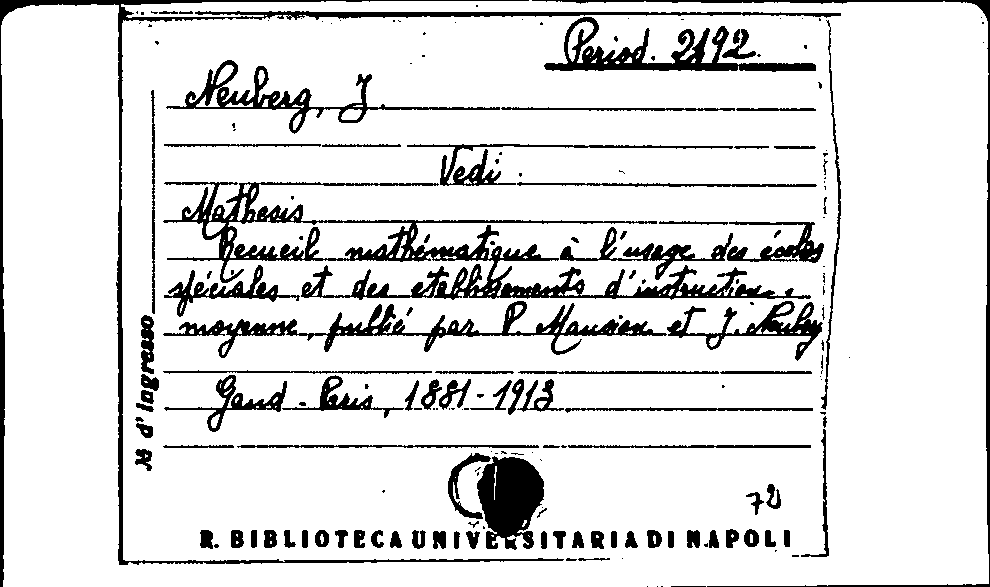 Period. 2192.
Neuberg, J.
Vedi
Mathesis.
Recueil mathématique à l'usage des écoles
spéciales et des etablissements d'instruction
moyenne, publié par P. Mansion et J. Neuberg
Gand - Paris, 1881-1913
72
R. BIBLIOTECA UNIVERSITARIA DI NAPOLI
№ d'Ingresso